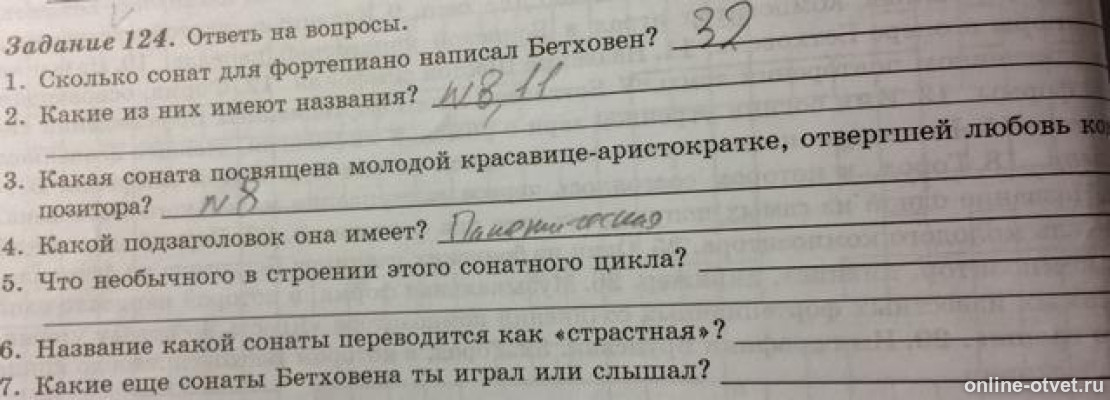 Задание 124. Ответь на вопросы.
1. Сколько сонат для фортепиано написал Бетховен? 32
2. Какие из них имеют названия? №8, 11
3. Какая соната посвящена молодой красавице-аристократке, отвергшей любовь ком
позитора? №8
4. Какой подзаголовок она имеет? Патетическая
5. Что необычного в строении этого сонатного цикла?
6. Название какой сонаты переводится как «страстная»?
7. Какие еще сонаты Бетховена ты играл или слышал?
online-otvet.ru